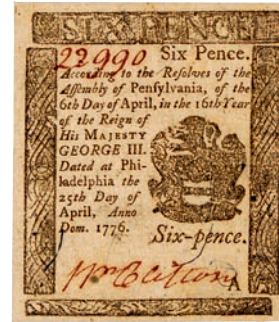 SIX PENCE
22990 Six Pence.
According to the Resolves of the
Assembly of Pensylvania, of the
6th Day of April, in the 16th Year
of the Reign of
His MAJESTY
GEORGE III.
Dated at Phi-
ladelphia the
25th Day of
April, Anno
Dom. 1776.
Six-pence.
A